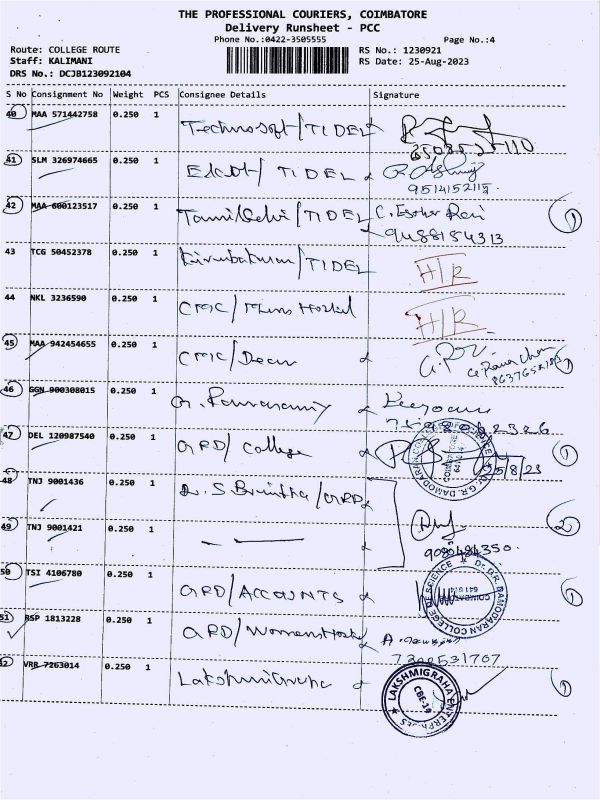 THE PROFESSIONAL COURIERS, COIMBATORE
Delivery Runsheet - PCC
Phone No.:0422-3505555 Page No.:4
Route: COLLEGE ROUTE RS No.: 1230921
Staff: KALIMANI RS Date: 25-Aug-2023
DRS No.: DCJB123092104
S No Consignment No Weight PCS Consignee Details Signature
40 MAA 571442758 0.250 1 Technosoft/TIDEL
41 SLM 326974665 0.250 1 Elcot/ TIDEL
9514152118
42 MAA 600123517 0.250 1 Tamilselvi/TIDEL C. Esther Rani 1
9488184313
43 TCG 50452378 0.250 1 Kirubakaran/TIDEL H/R
44 NKL 3236590 0.250 1 CMC/Mens Hostel H/R
45 MAA 942454655 0.250 1 CMC/Dean 1
46 GGN 900308015 0.250 1 G. Ramasamy
47 DEL 120987540 0.250 1 GRD/College 1
48 TNJ 9001436 0.250 1 S. Brintha/GRD 2
49 TNJ 9001421 0.250 1
50 TSI 4106780 0.250 1 GRD/ACCOUNTS 1
Dr. G.R. DAMODARAN COLLEGE OF SCIENCE
51 BSP 1813228 0.250 1 GRD/Womens Hostel
7200531707
52 VRR 7263014 0.250 1 Lakshmigraha 1
LAKSHMIGRAHA ENTERPRISES
CBE-19